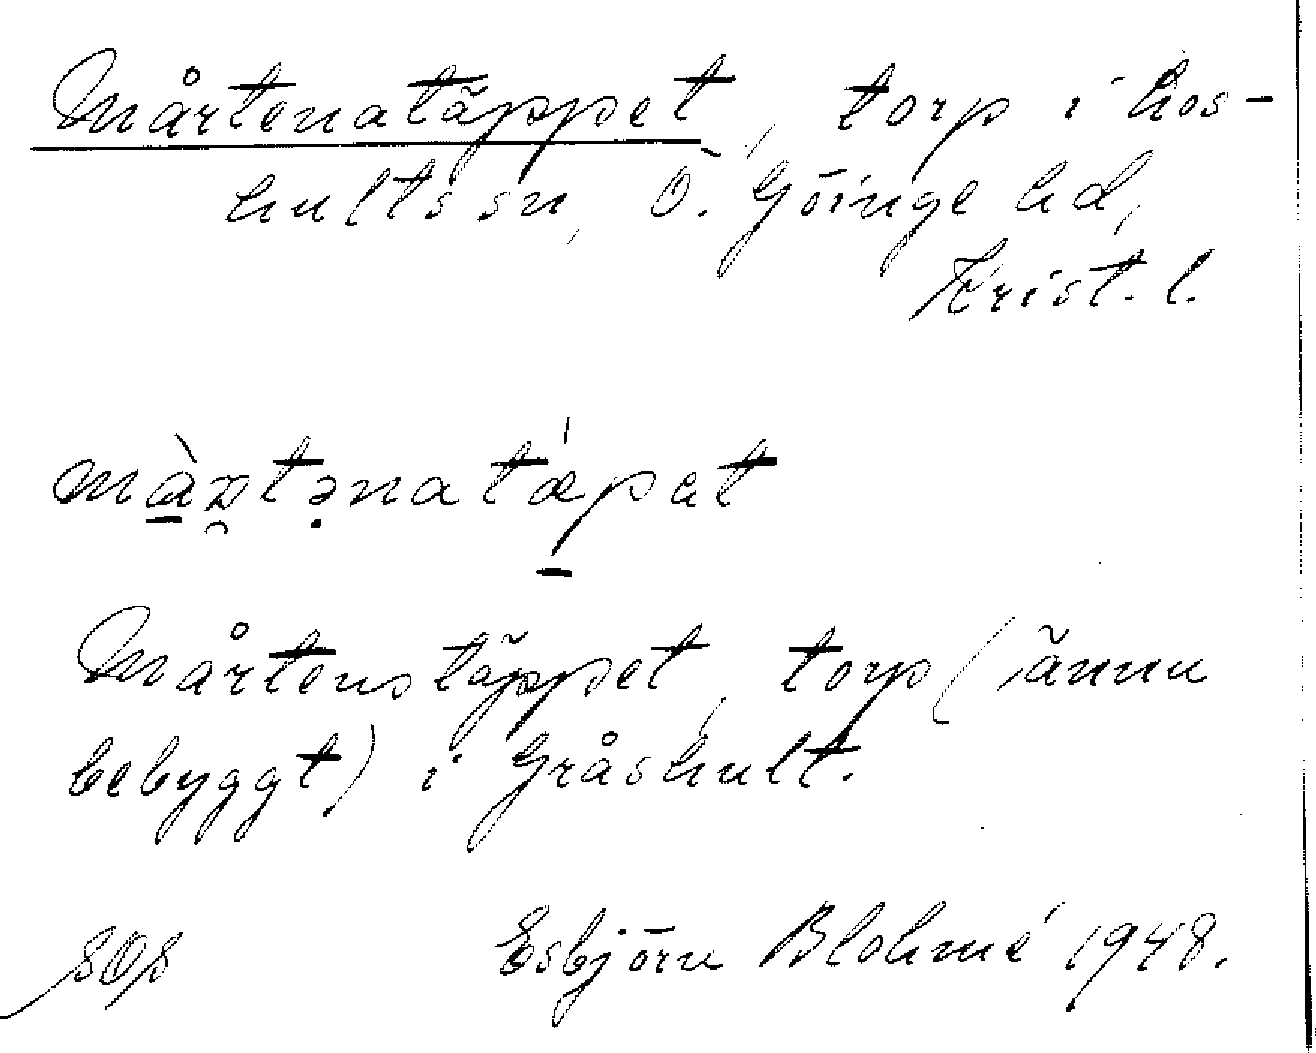 Mårtenatäppet, torp i Los-
hults sn, Ö. Göinge hd,
Krist. l.
Mårtenstäppet, torp (ännu
bebyggt) i Gråshult.
Esbjörn Blohmé 1948.